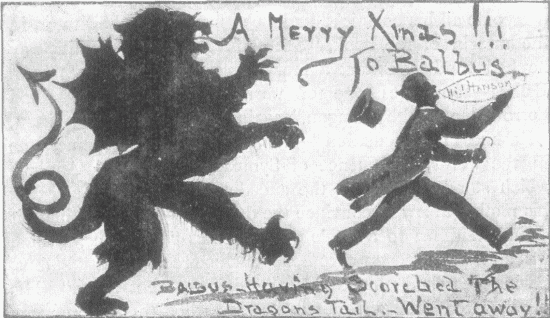 A Merry Xmas!!!
To Balbus
Hi! Hanson!
Balbus-Having Scorched The
Dragons Tail.-Went away!!